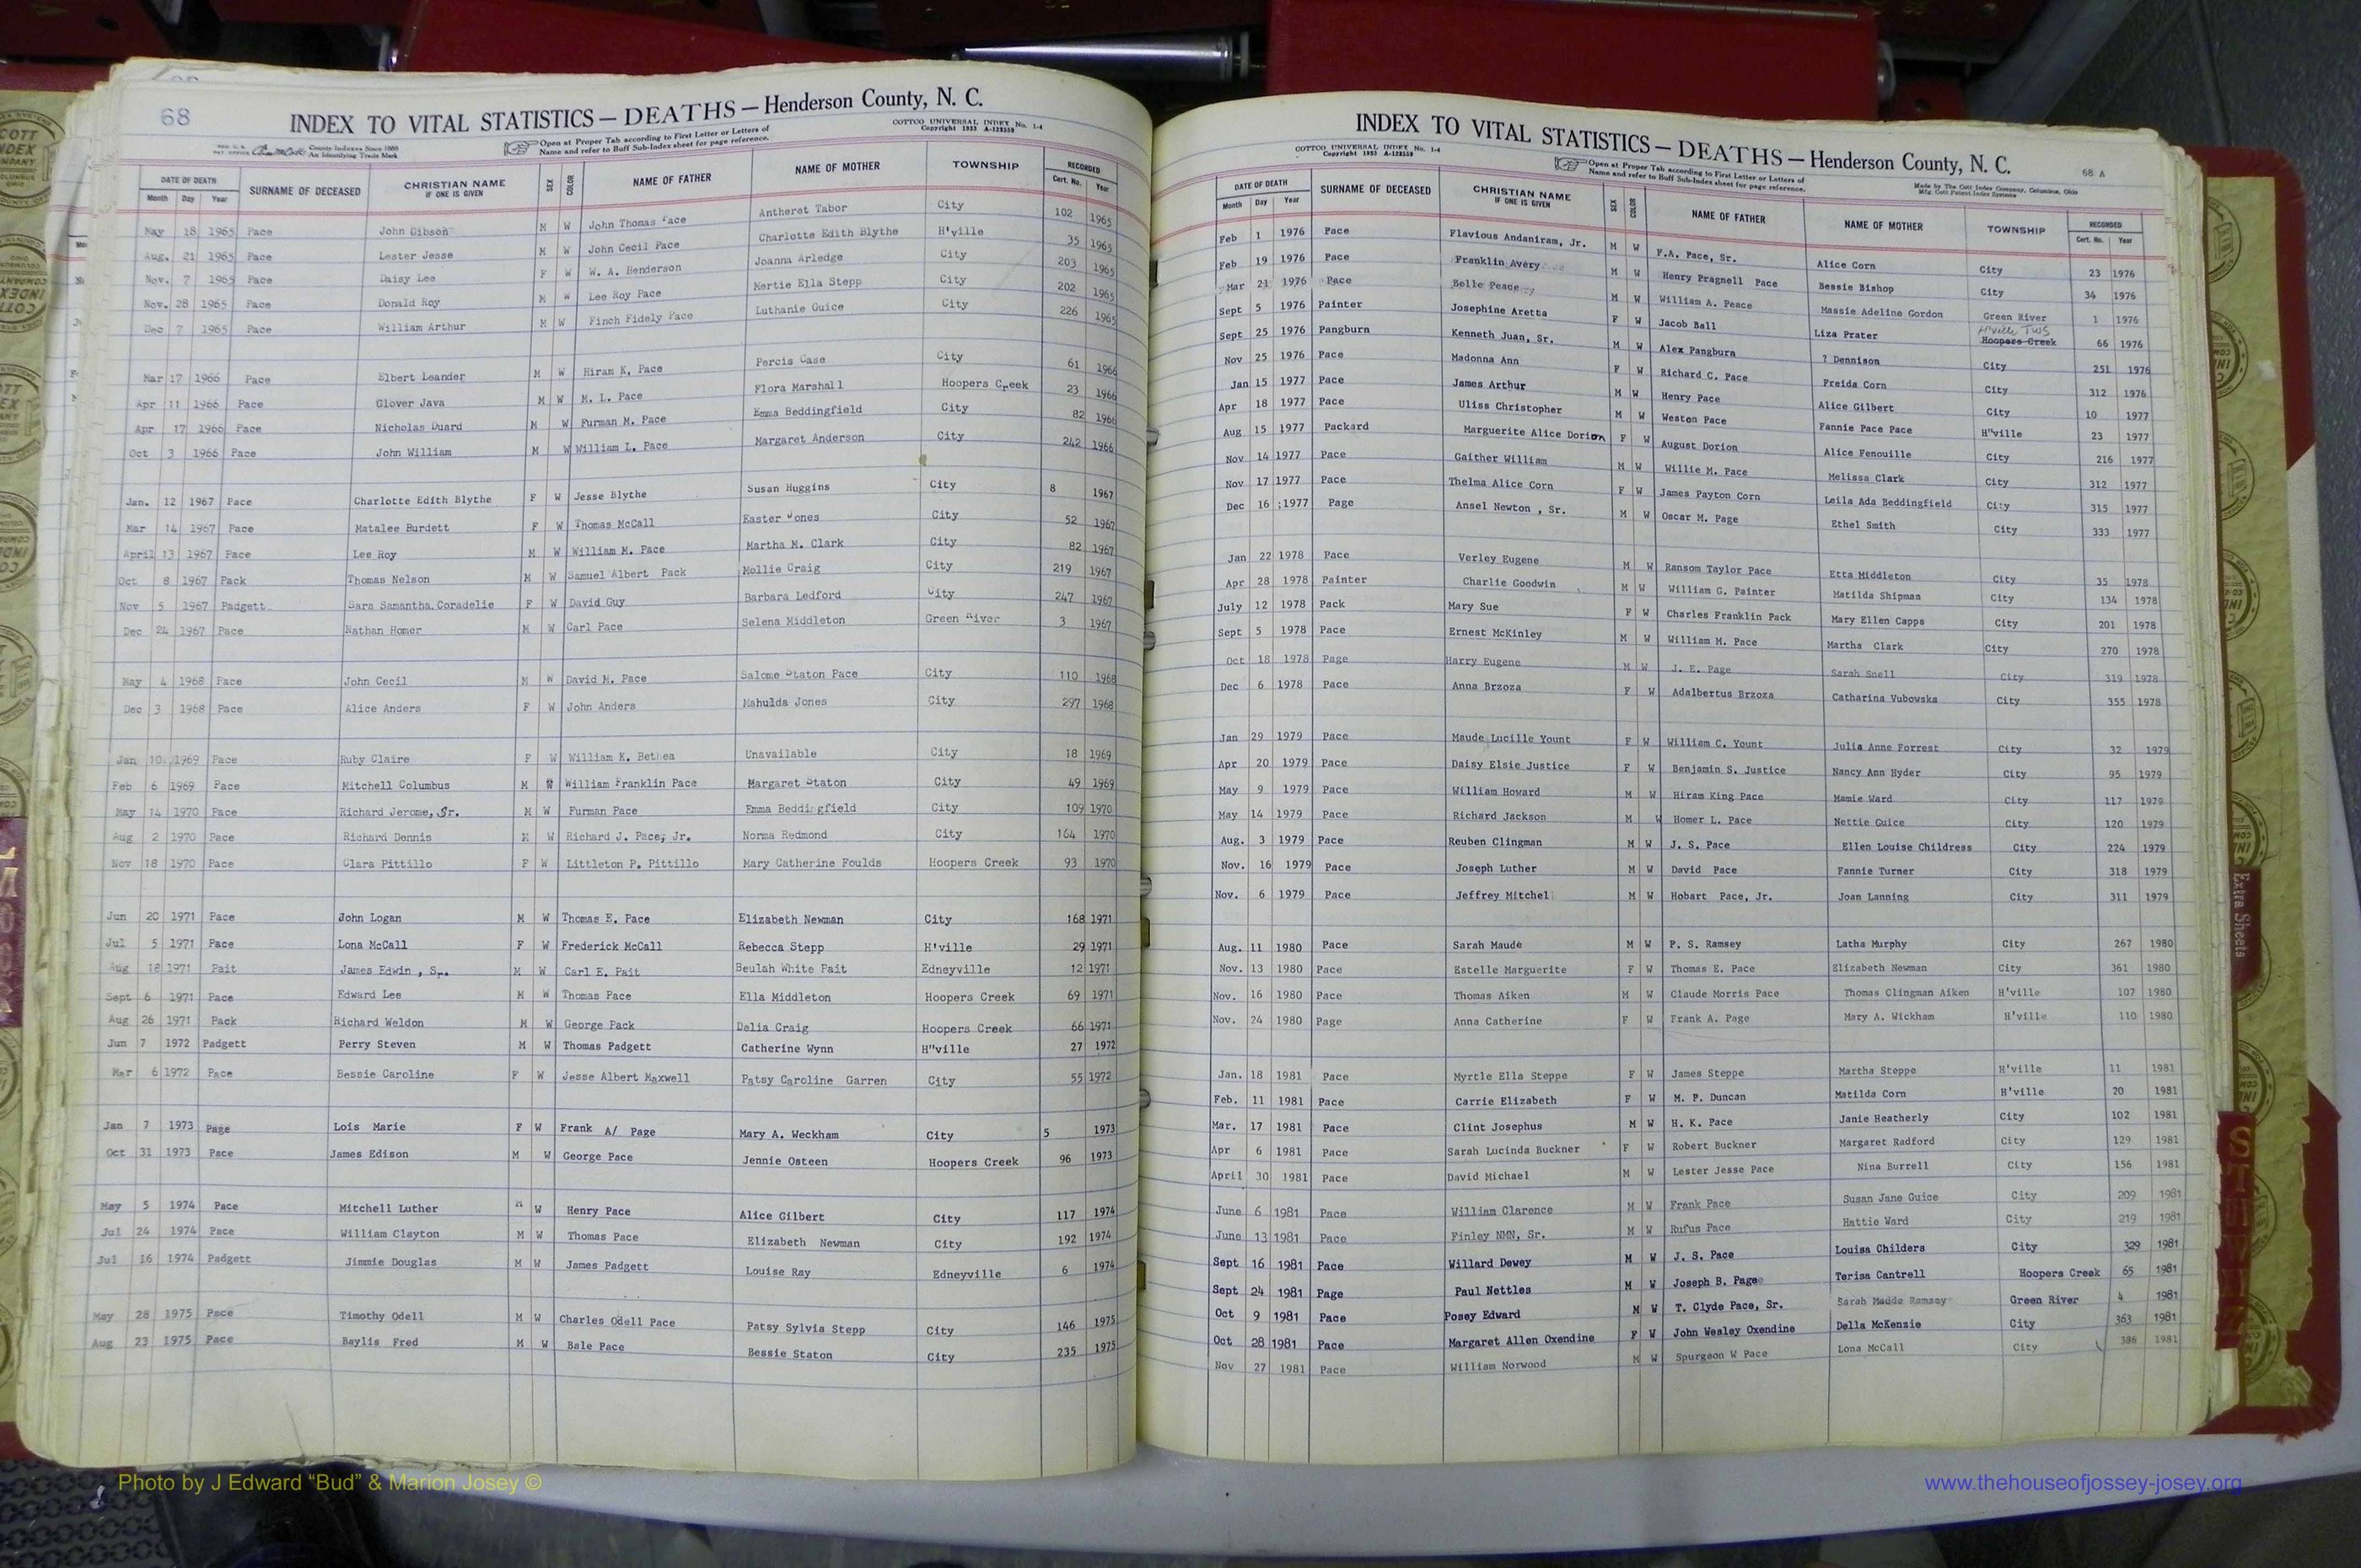 68
INDEX TO VITAL STATISTICS — DEATHS — Henderson County, N. C.
COTTCO UNIVERSAL INDEX No. 1-4
Copyright 1933 A-122559
County Indexes Since 1888
An Identifying Trade Mark
Open at Proper Tab according to First Letter or Letters of
Name and refer to Buff Sub-Index sheet for page reference.
DATE OF DEATH SURNAME OF DECEASED CHRISTIAN NAME IF ONE IS GIVEN SEX COLOR NAME OF FATHER NAME OF MOTHER TOWNSHIP RECORDED
Month Day Year Cert. No. Year
May 18 1965 Pace John Gibson M W John Thomas Pace Antheret Tabor City 102 1965
Aug. 21 1965 Pace Lester Jesse M W John Cecil Pace Charlotte Edith Blythe H'ville 35 1965
Nov. 7 1965 Pace Daisy Lee F W W. A. Henderson Joanna Arledge City 203 1965
Nov. 28 1965 Pace Donald Roy M W Lee Roy Pace Mertie Ella Stepp City 202 1965
Dec 7 1965 Pace William Arthur M W Finch Fidely Pace Luthanie Guice City 226 1965
Mar 17 1966 Pace Elbert Leander M W Hiram K. Pace Percis Case City 61 1966
Apr 11 1966 Pace Glover Java M W M. L. Pace Flora Marshall Hoopers Creek 23 1966
Apr 17 1966 Pace Nicholas Duard M W Furman M. Pace Emma Beddingfield City 82 1966
Oct 3 1966 Pace John William M W William L. Pace Margaret Anderson City 242 1966
Jan. 12 1967 Pace Charlotte Edith Blythe F W Jesse Blythe Susan Huggins City 8 1967
Mar 14 1967 Pace Matalee Burdett F W Thomas McCall Easter Jones City 52 1967
April 13 1967 Pace Lee Roy M W William M. Pace Martha M. Clark City 82 1967
Oct 8 1967 Pack Thomas Nelson M W Samuel Albert Pack Mollie Craig City 219 1967
Nov 5 1967 Padgett Sara Samantha Coradelie F W David Guy Barbara Ledford City 247 1967
Dec 24 1967 Pace Nathan Homer M W Carl Pace Selena Middleton Green River 3 1967
May 4 1968 Pace John Cecil M W David M. Pace Salome Staton Pace City 110 1968
Dec 3 1968 Pace Alice Anders F W John Anders Mahulda Jones City 297 1968
Jan 10 1969 Pace Ruby Claire F W William K. Bethea Unavailable City 18 1969
Feb 6 1969 Pace Mitchell Columbus M W William Franklin Pace Margaret Staton City 49 1969
May 14 1970 Pace Richard Jerome, Sr. M W Furman Pace Emma Beddingfield City 109 1970
Aug 2 1970 Pace Richard Dennis M W Richard J. Pace, Jr. Norma Redmond City 164 1970
Nov 18 1970 Pace Clara Pittillo F W Littleton P. Pittillo Mary Catherine Foulds Hoopers Creek 93 1970
Jun 20 1971 Pace John Logan M W Thomas E. Pace Elizabeth Newman City 168 1971
Jul 5 1971 Pace Lona McCall F W Frederick McCall Rebecca Stepp H'ville 29 1971
Aug 18 1971 Pait James Edwin , Sr. M W Carl E. Pait Beulah White Pait Edneyville 12 1971
Sept 6 1971 Pace Edward Lee M W Thomas Pace Ella Middleton Hoopers Creek 69 1971
Aug 26 1971 Pack Richard Weldon M W George Pack Delia Craig Hoopers Creek 66 1971
Jun 7 1972 Padgett Perry Steven M W Thomas Padgett Catherine Wynn H"ville 27 1972
Mar 6 1972 Pace Bessie Caroline F W Jesse Albert Maxwell Patsy Caroline Garren City 55 1972
Jan 7 1973 Page Lois Marie F W Frank A/ Page Mary A. Weckham City 5 1973
Oct 31 1973 Pace James Edison M W George Pace Jennie Osteen Hoopers Creek 96 1973
May 5 1974 Pace Mitchell Luther M W Henry Pace Alice Gilbert City 117 1974
Jul 24 1974 Pace William Clayton M W Thomas Pace Elizabeth Newman City 192 1974
Jul 16 1974 Padgett Jimmie Douglas M W James Padgett Louise Ray Edneyville 6 1974
May 28 1975 Pace Timothy Odell M W Charles Odell Pace Patsy Sylvia Stepp City 146 1975
Aug 23 1975 Pace Baylis Fred M W Bale Pace Bessie Staton City 235 1975
INDEX TO VITAL STATISTICS — DEATHS — Henderson County, N. C.
COTTCO UNIVERSAL INDEX No. 1-4
Copyright 1933 A-122559
Open at Proper Tab according to First Letter or Letters of
Name and refer to Buff Sub-Index sheet for page reference.
68 A
Made by The Cott Index Company, Columbus, Ohio
Mfg. Cott Patent Index Systems
DATE OF DEATH SURNAME OF DECEASED CHRISTIAN NAME IF ONE IS GIVEN SEX COLOR NAME OF FATHER NAME OF MOTHER TOWNSHIP RECORDED
Month Day Year Cert. No. Year
Feb 1 1976 Pace Flavious Andaniram, Jr. M W F.A. Pace, Sr. Alice Corn City 23 1976
Feb 19 1976 Pace Franklin Avery M W Henry Pragnell Pace Bessie Bishop City 34 1976
Mar 21 1976 Pace Belle Peace M W William A. Peace Massie Adeline Gordon Green River 1 1976
Sept 5 1976 Painter Josephine Aretta F W Jacob Ball Liza Prater H'ville TWS Hoopers Creek 66 1976
Sept 25 1976 Pangburn Kenneth Juan, Sr. M W Alex Pangburn ? Dennison City 251 1976
Nov 25 1976 Pace Madonna Ann F W Richard C. Pace Freida Corn City 312 1976
Jan 15 1977 Pace James Arthur M W Henry Pace Alice Gilbert City 10 1977
Apr 18 1977 Pace Uliss Christopher M W Weston Pace Fannie Pace Pace H"ville 23 1977
Aug 15 1977 Packard Marguerite Alice Dorion F W August Dorion Alice Fenouille City 216 1977
Nov 14 1977 Pace Gaither William M W Willie M. Pace Melissa Clark City 312 1977
Nov 17 1977 Pace Thelma Alice Corn F W James Payton Corn Leila Ada Beddingfield City 315 1977
Dec 16 1977 Page Ansel Newton , Sr. M W Oscar M. Page Ethel Smith City 333 1977
Jan 22 1978 Pace Verley Eugene M W Ransom Taylor Pace Etta Middleton City 35 1978
Apr 28 1978 Painter Charlie Goodwin M W William G. Painter Matilda Shipman City 134 1978
July 12 1978 Pack Mary Sue F W Charles Franklin Pack Mary Ellen Capps City 201 1978
Sept 5 1978 Pace Ernest McKinley M W William M. Pace Martha Clark City 270 1978
Oct 18 1978 Page Harry Eugene M W J. E. Page Sarah Snell City 319 1978
Dec 6 1978 Pace Anna Brzoza F W Adalbertus Brzoza Catharina Vubowska City 355 1978
Jan 29 1979 Pace Maude Lucille Yount F W William C. Yount Julia Anne Forrest City 32 1979
Apr 20 1979 Pace Daisy Elsie Justice F W Benjamin S. Justice Nancy Ann Hyder City 95 1979
May 9 1979 Pace William Howard M W Hiram King Pace Mamie Ward City 117 1979
May 14 1979 Pace Richard Jackson M W Homer L. Pace Nettie Guice City 120 1979
Aug. 3 1979 Pace Reuben Clingman M W J. S. Pace Ellen Louise Childress City 224 1979
Nov. 16 1979 Pace Joseph Luther M W David Pace Fannie Turner City 318 1979
Nov. 6 1979 Pace Jeffrey Mitchel M W Hobart Pace, Jr. Joan Lanning City 311 1979
Aug. 11 1980 Pace Sarah Maude M W P. S. Ramsey Latha Murphy City 267 1980
Nov. 13 1980 Pace Estelle Marguerite F W Thomas E. Pace Elizabeth Newman City 361 1980
Nov. 16 1980 Pace Thomas Aiken M W Claude Morris Pace Thomas Clingman Aiken H'ville 107 1980
Nov. 24 1980 Page Anna Catherine F W Frank A. Page Mary A. Wickham H'ville 110 1980
Jan. 18 1981 Pace Myrtle Ella Steppe F W James Steppe Martha Steppe H'ville 11 1981
Feb. 11 1981 Pace Carrie Elizabeth F W M. P. Duncan Matilda Corn H'ville 20 1981
Mar. 17 1981 Pace Clint Josephus M W H. K. Pace Janie Heatherly City 102 1981
Apr 6 1981 Pace Sarah Lucinda Buckner F W Robert Buckner Margaret Radford City 129 1981
April 30 1981 Pace David Michael M W Lester Jesse Pace Nina Burrell City 156 1981
June 6 1981 Pace William Clarence M W Frank Pace Susan Jane Guice City 209 1981
June 13 1981 Pace Finley NMN, Sr. M W Rufus Pace Hattie Ward City 219 1981
Sept 16 1981 Pace Willard Dewey M W J. S. Pace Louisa Childers City 329 1981
Sept 24 1981 Page Paul Nettles M W Joseph B. Page Terisa Cantrell Hoopers Creek 65 1981
Oct 9 1981 Pace Posey Edward M W T. Clyde Pace, Sr. Sarah Maude Ramsey Green River 4 1981
Oct 28 1981 Pace Margaret Allen Oxendine F W John Wesley Oxendine Della McKenzie City 363 1981
Nov 27 1981 Pace William Norwood M W Spurgeon W Pace Lona McCall City 386 1981
Extra Sheets
Photo by J Edward “Bud” & Marion Josey ©
www.thehouseofjossey-josey.org